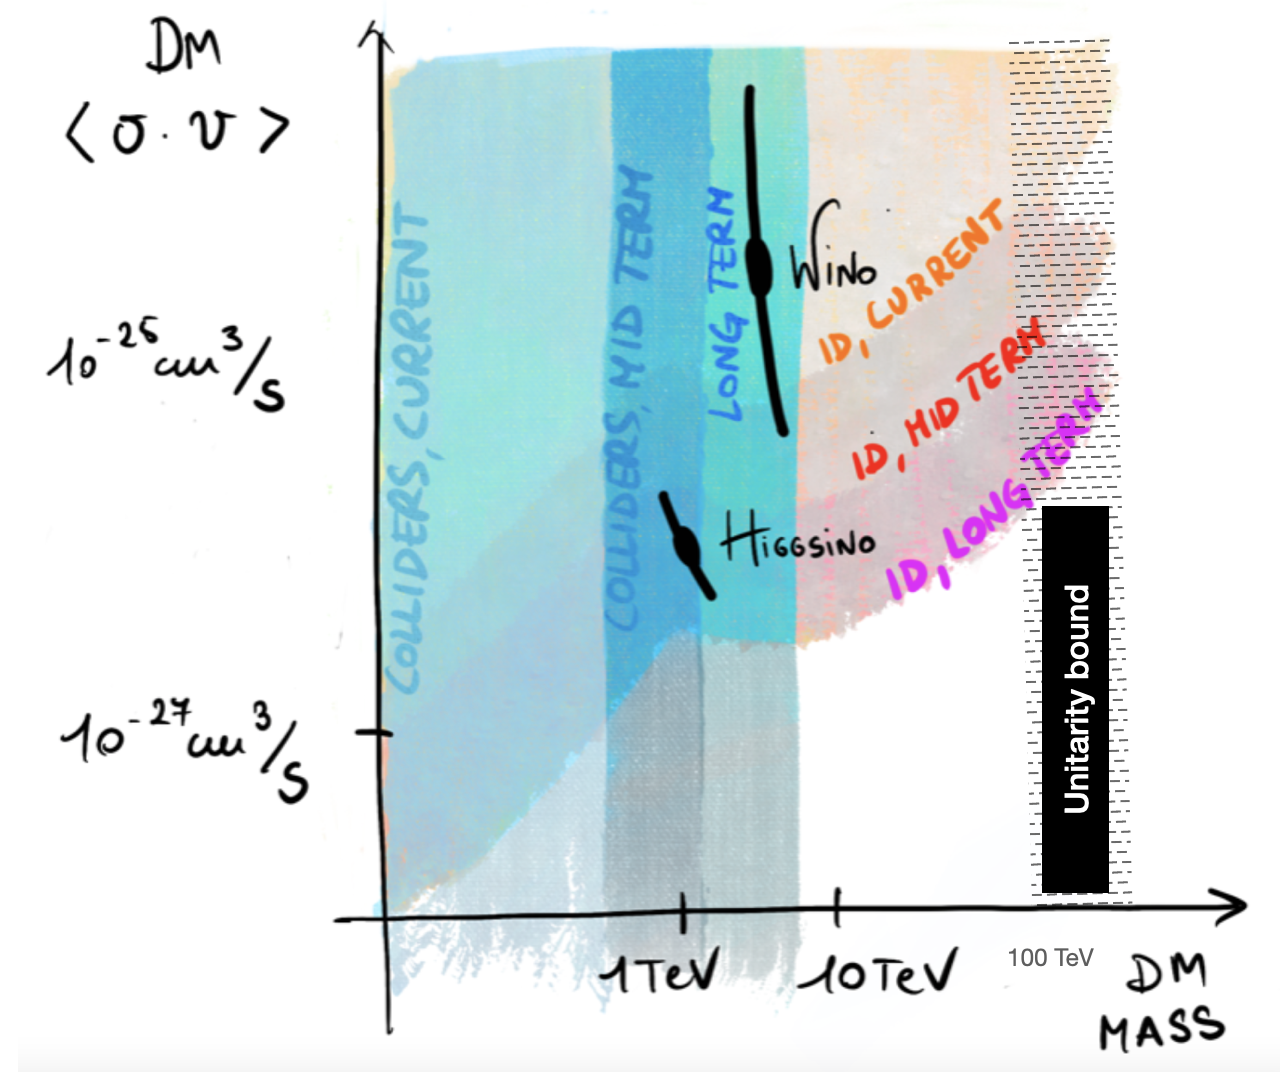 DM
< σ · v >
10^-25 cm^3/s
10^-27 cm^3/s
COLLIDERS, CURRENT
COLLIDERS, MID TERM
LONG TERM
WINO
HIGGSINO
ID, CURRENT
ID, MID TERM
ID, LONG TERM
Unitarity bound
1 TeV
10 TeV
100 TeV
DM
MASS